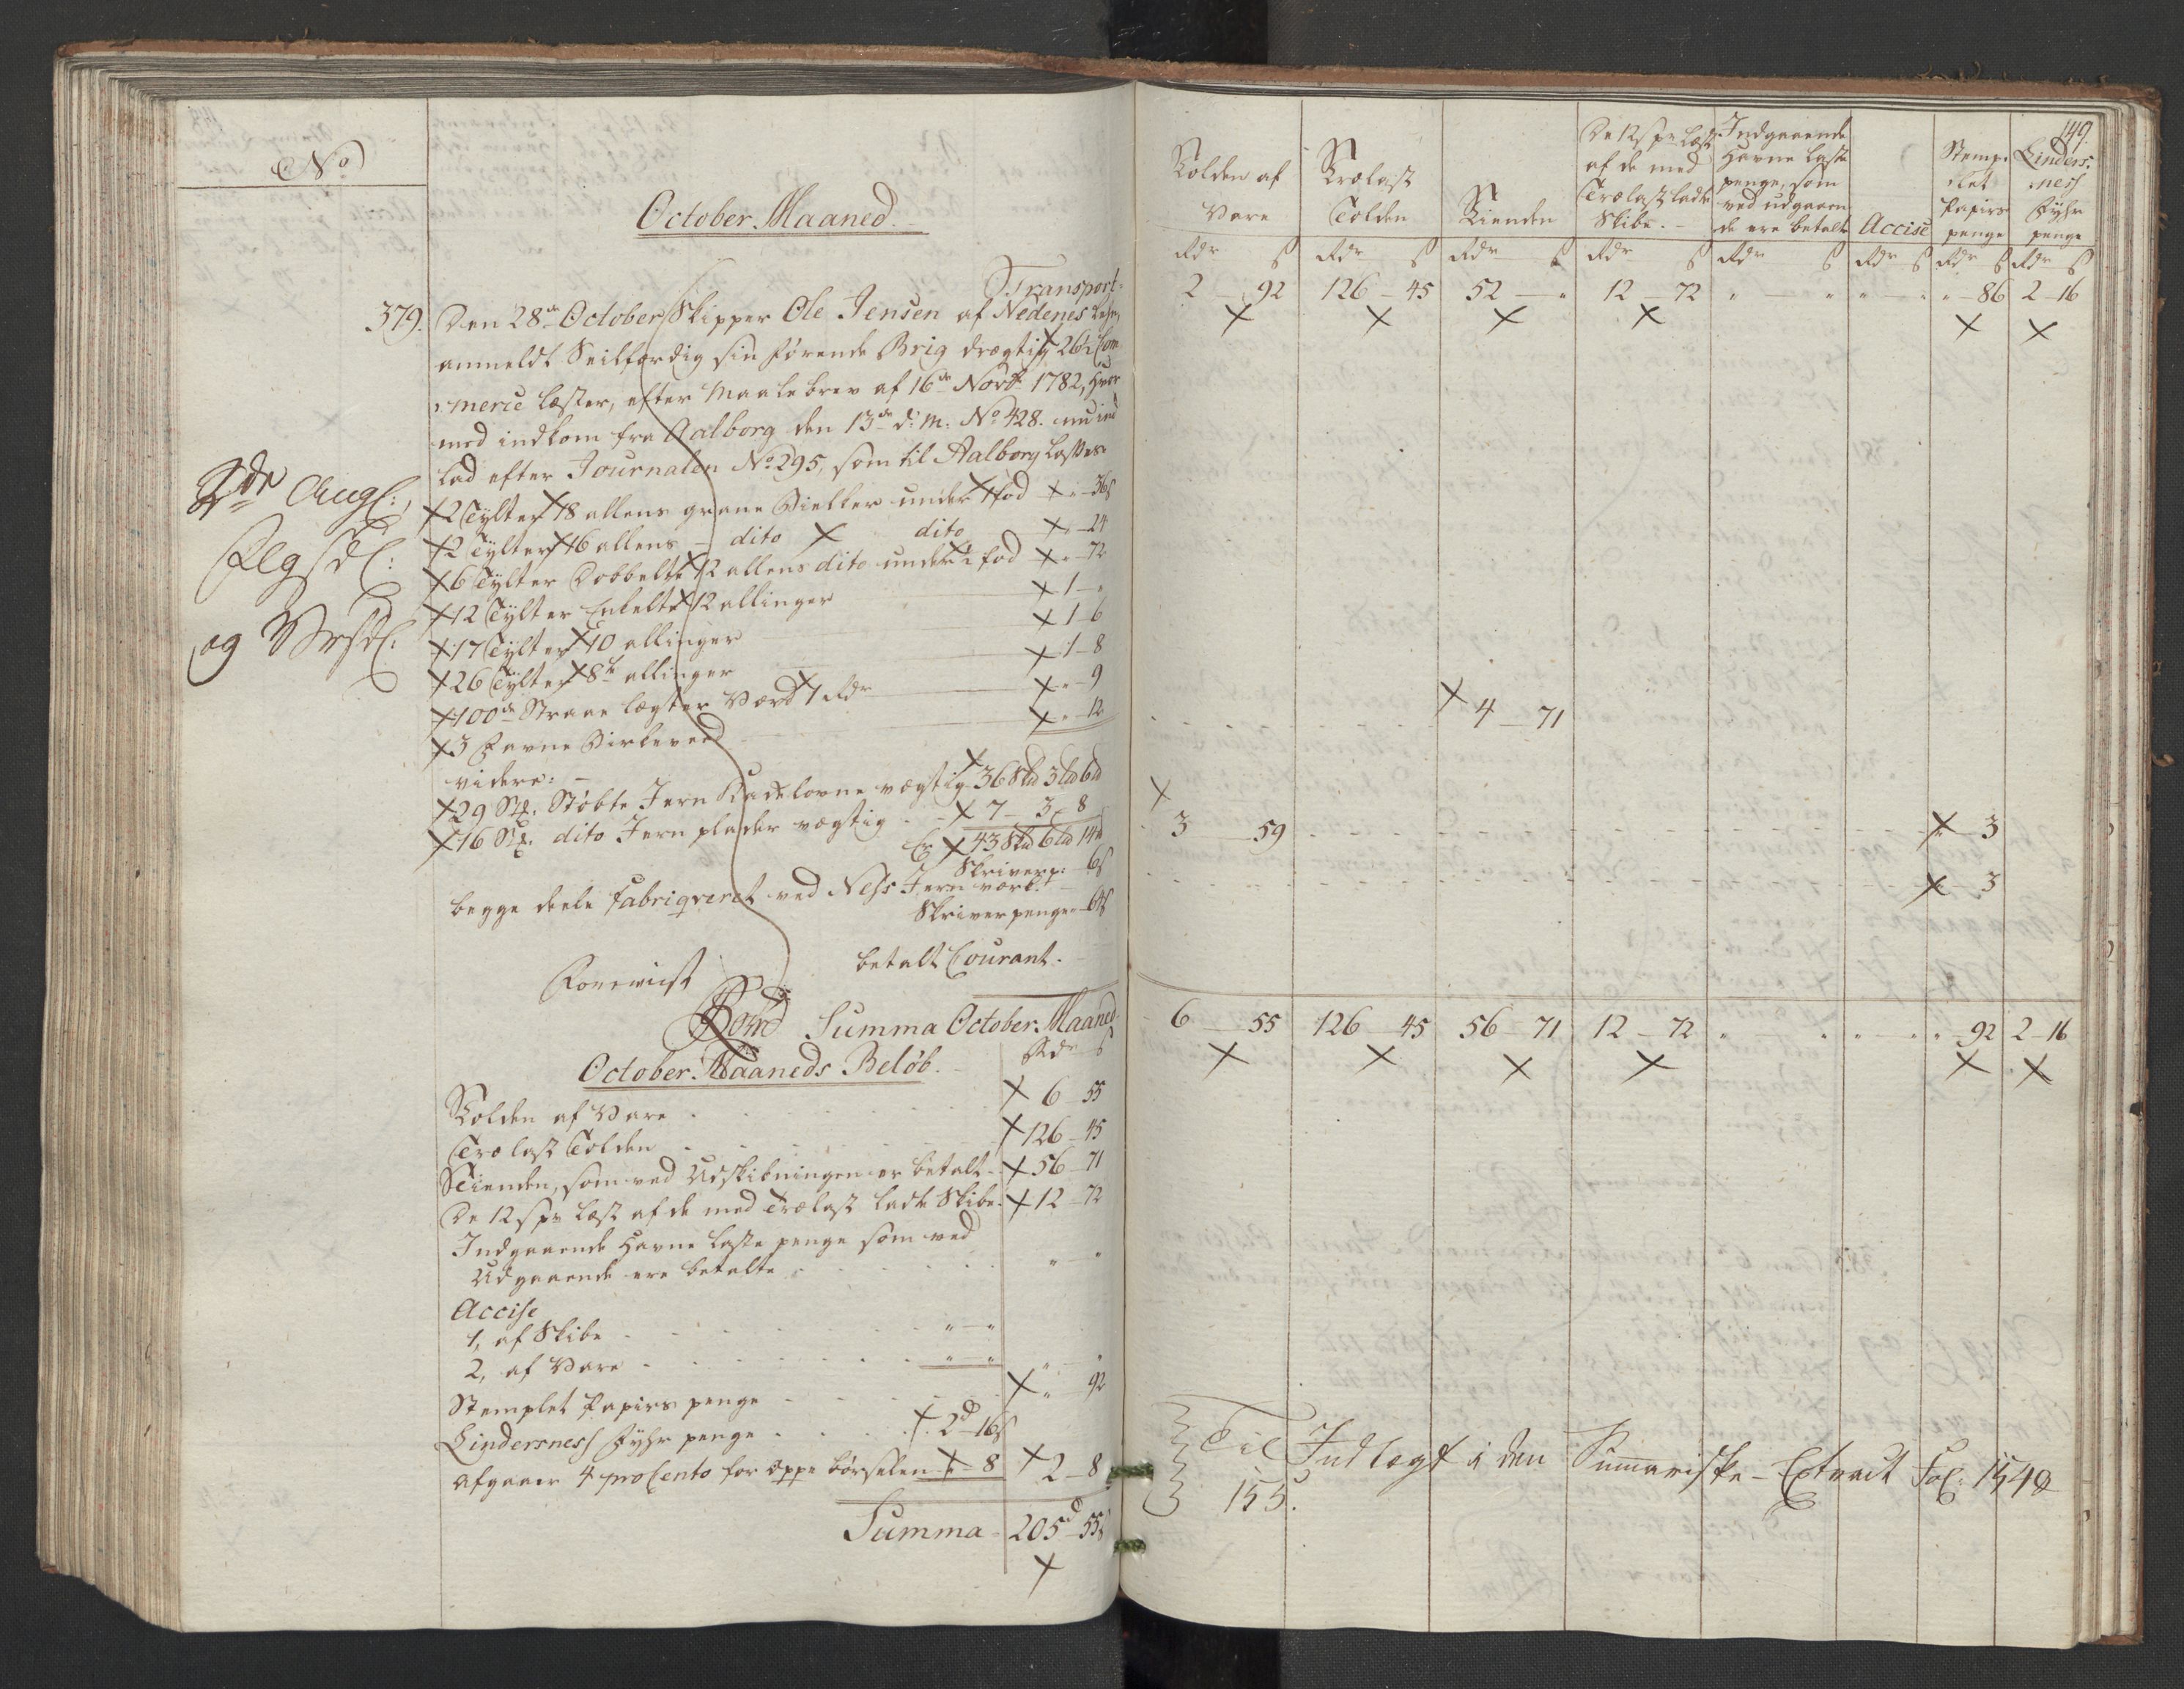 No
October Maaned.
Transport
379. Den 28de October Skipper Ole Jensen af Nedenes Lehn
anmeldt Seilfærdig sin førende Brig drægtig 26½ Com-
merce læster, efter Maalebrev af 16de Novbr 1782, hvor
med indkom fra Aalborg den 13de d: M: No 428. nu ind
lad efter Journalen No 295, som til Aalborg losses
2 Tylter 18 allens grane Bielker under 1 fod " 36 s
2 Tylter 16 allens dito dito " 24
6 Tylter Dobbelte 12 allens dito under 1 fod " 72
12 Tylter Enkelte 12 allinger 1 "
17 Tylter 10 allinger 1 6
26 Tylter 8te allinger 1 8
100de Straae lægter Værd 1 Rdr " 9
3 Favne Birkeved " 12
videre:
29 St. Støbte Jern Kackelovne vægtig 36 S℔ 3 L℔ 6 ℔
16 St. dito Jern plader vægtig 7 3 8
Er 43 S℔ 6 L℔ 14 ℔
Skriverp: 6 s
begge deele fabriqveret ved Næs Jern værk.
Skriverpenge 64 s
betalt Courant.
Summa October Maaned
2de Angl:
og
October Maaneds Beløb. Rdr s
Tolden af Vare 6 55
Træ last Tolden 126 45
Tienden, som ved Udskibningen er betalt 56 71
De 12 s pr Læst af de med Trælast ladte Skibe 12 72
Indgaaende Havne laste penge som ved
Udgaaende ere betalte " "
Accise
1, af Skibe " "
2, af Vare " " " "
Stemplet Papirs penge " 92
Lindersness Fyhr penge 2d 16 s
Afgaaer 4 pro Cento for oppebørselen " 8 2 8
Summa 205d 55 s
149.
Tolden af Vare | Trælast Tolden | Tienden | De 12 s pr Læst af de med Trælast ladte Skibe. | Indgaaende Havne Laste penge, som ved udgaaende ere betalt | Accise | Stemplet Papirs penge | Lindersness Fyhr penge
Rdr s | Rdr s | Rdr s | Rdr s | Rdr s | Rdr s | Rdr s | Rdr s
2 92 | 126 45 | 52 " | 12 72 | " " | " " | " 86 | 2 16
4 71
3 59 | " 3
" 3
6 55 | 126 45 | 56 71 | 12 72 | " " | " " | " 92 | 2 16
Til Indlagt i den Summariske Extract Fol: 154 &
155.